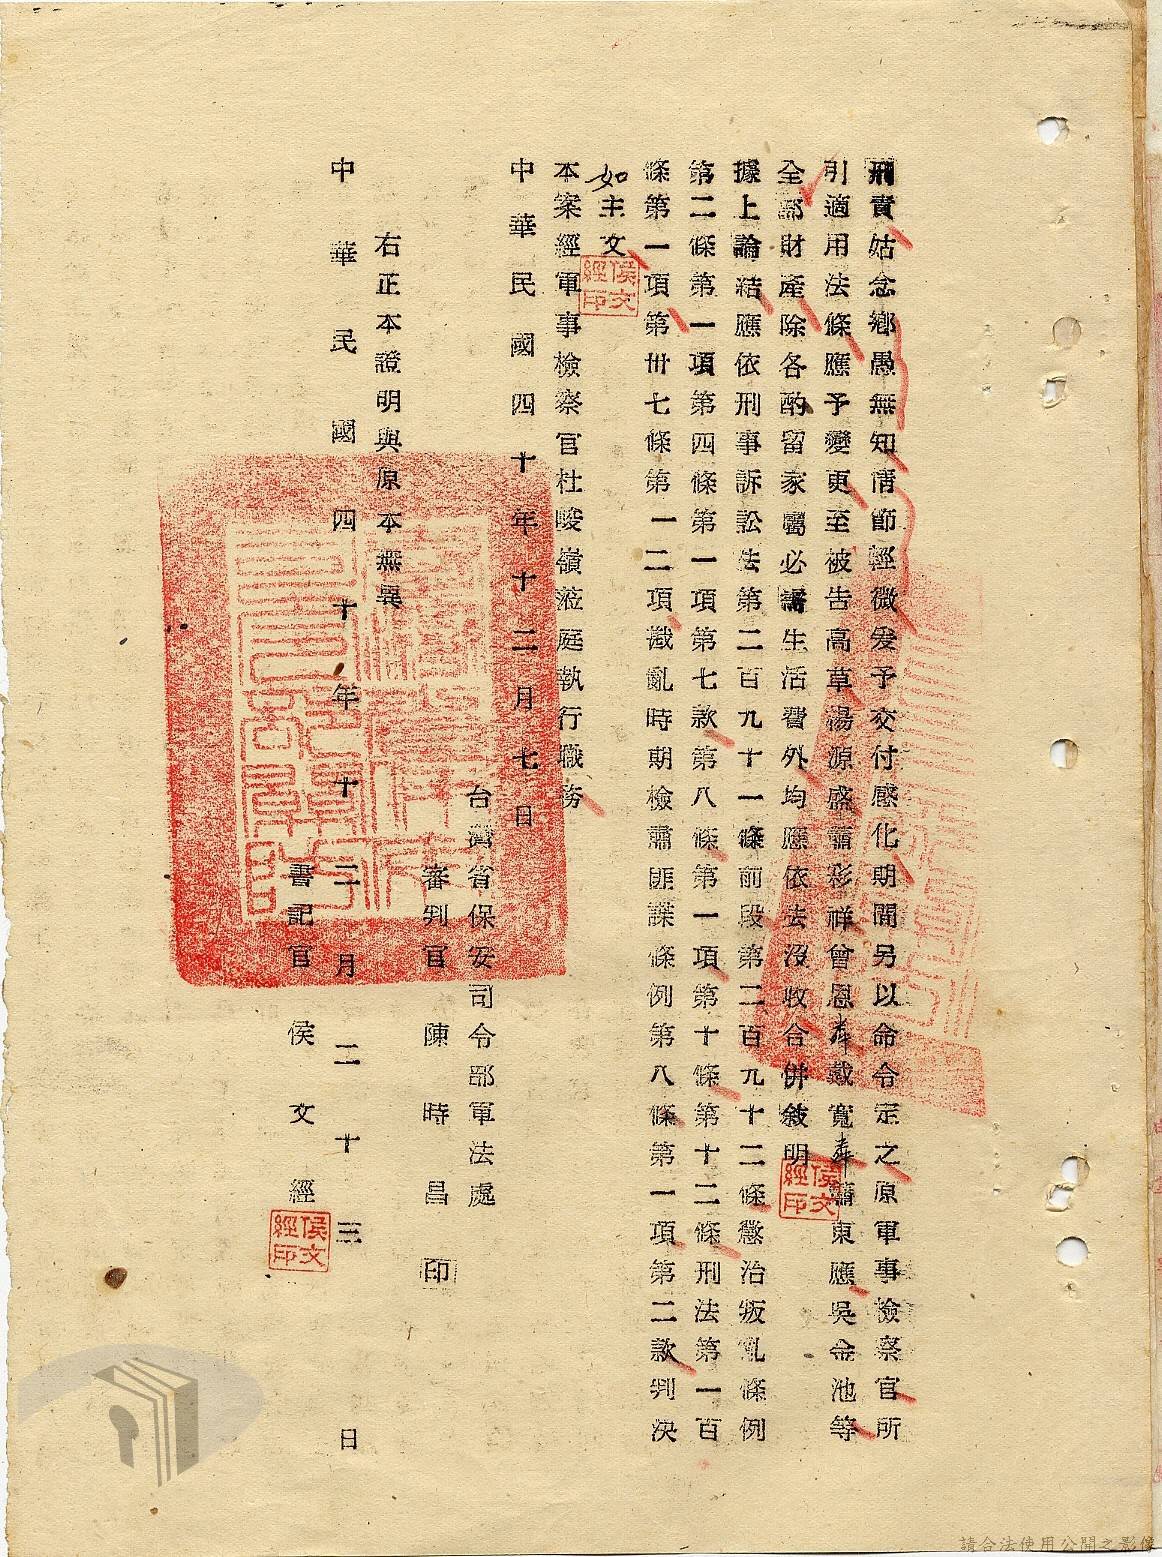 刑責姑念鄉愚無知情節輕微爰予交付感化期間另以命令定之原軍事檢察官所
引適用法條應予變更至被告高草湯源盛蕭彩祥曾恩戴寬蕭東應吳金池等
全部財產除各酌留家屬必需生活費外均應依法沒收合併敍明
據上論結應依刑事訴訟法第二百九十一條前段第二百九十二條懲治叛亂條例
第二條第一項第四條第一項第七款第八條第一項第十條第十二條刑法第一百
條第一項第卅七條第一二項戡亂時期檢肅匪諜條例第八條第一項第二款判決
如主文
本案經軍事檢察官杜峻嶺蒞庭執行職務
中華民國四十年十二月七日
台灣省保安司令部軍法處
審判官 陳時昌 印
右正本證明與原本無異
中華民國四十年十二月二十三日
書記官 侯文經
侯文經印
侯文經印
侯文經印
請合法使用公開之影像